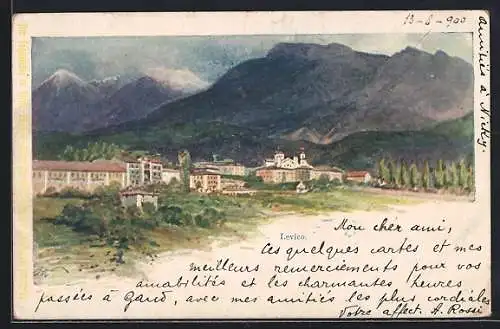 13-8-900
amitiés à Nicky.
Levico.
Mon cher ami,
Ces quelques cartes et mes
meilleurs remerciements pour vos
amabilités et les charmantes heures
passées à Gand, avec mes amitiés les plus cordiales
Votre affect. A. Rossi